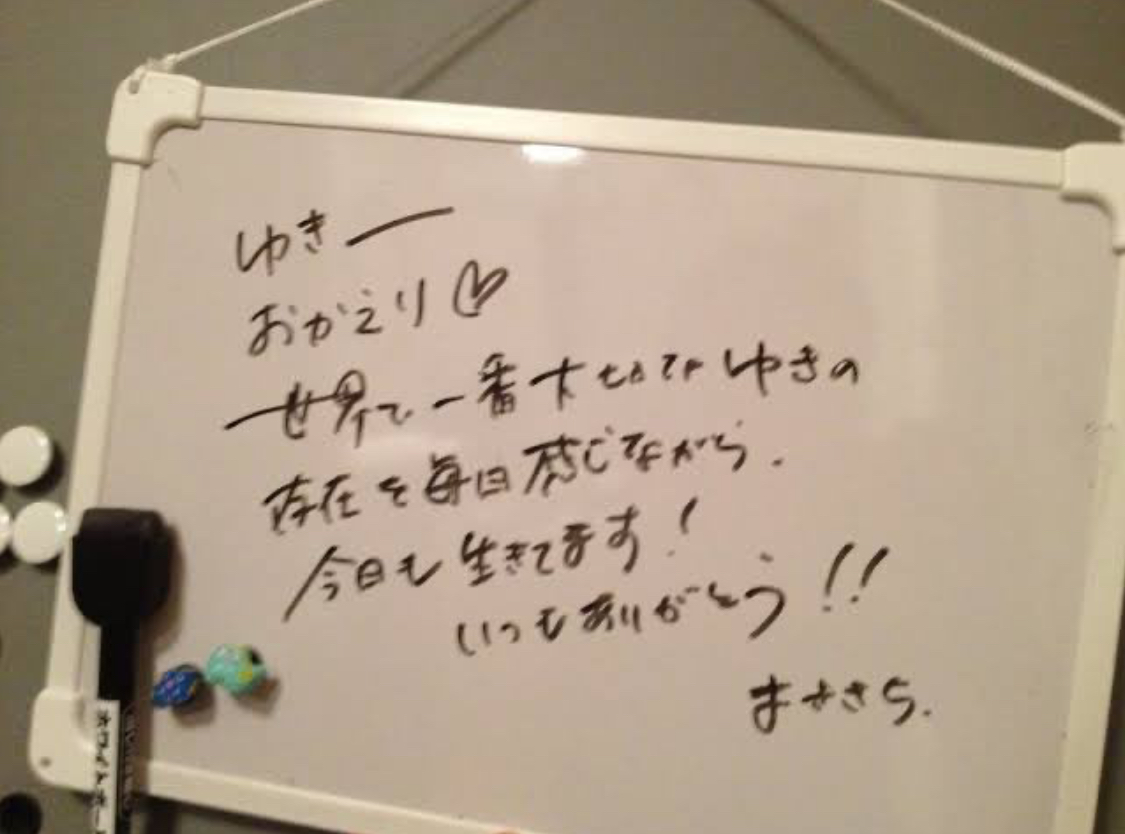 ゆきー
おかえり♡
世界で一番大切なゆきの
存在を毎日感じながら.
今日も生きてます!
いつもありがとう!!
ホワイトボード